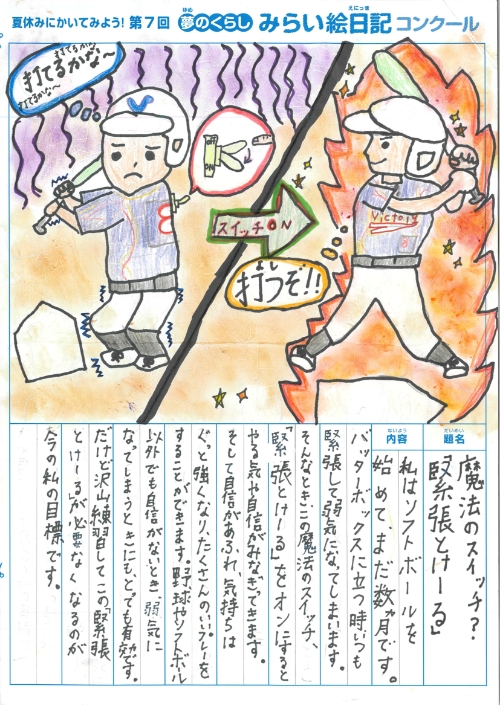 夏休みにかいてみよう！第7回 夢のくらし みらい絵日記コンクール
ゆめ
えにっき
打てるかな〜
打てるかな〜
打てるかな〜
スイッチON
よし
打つぞ!!
Victory
8
8
題名
だいめい
魔法のスイッチ？
「緊張とけーる」
内容
ないよう
私はソフトボールを
始めてまだ数ヵ月です。
バッターボックスに立つ時いつも
緊張して弱気になってしまいます。
そんなときこの魔法のスイッチ、
「緊張とけーる」をオンにすると
やる気や自信がみなぎてきます。
そして自信があふれ、気持ちは
ぐっと強くなり、たくさんのいいプレーを
することができます。野球やソフトボール
以外でも自信がないとき、弱気に
なってしまうときにも、とっても有効です。
だけど沢山練習してこの「緊張
とけーる」が必要なくなるのが
今の私の目標です。